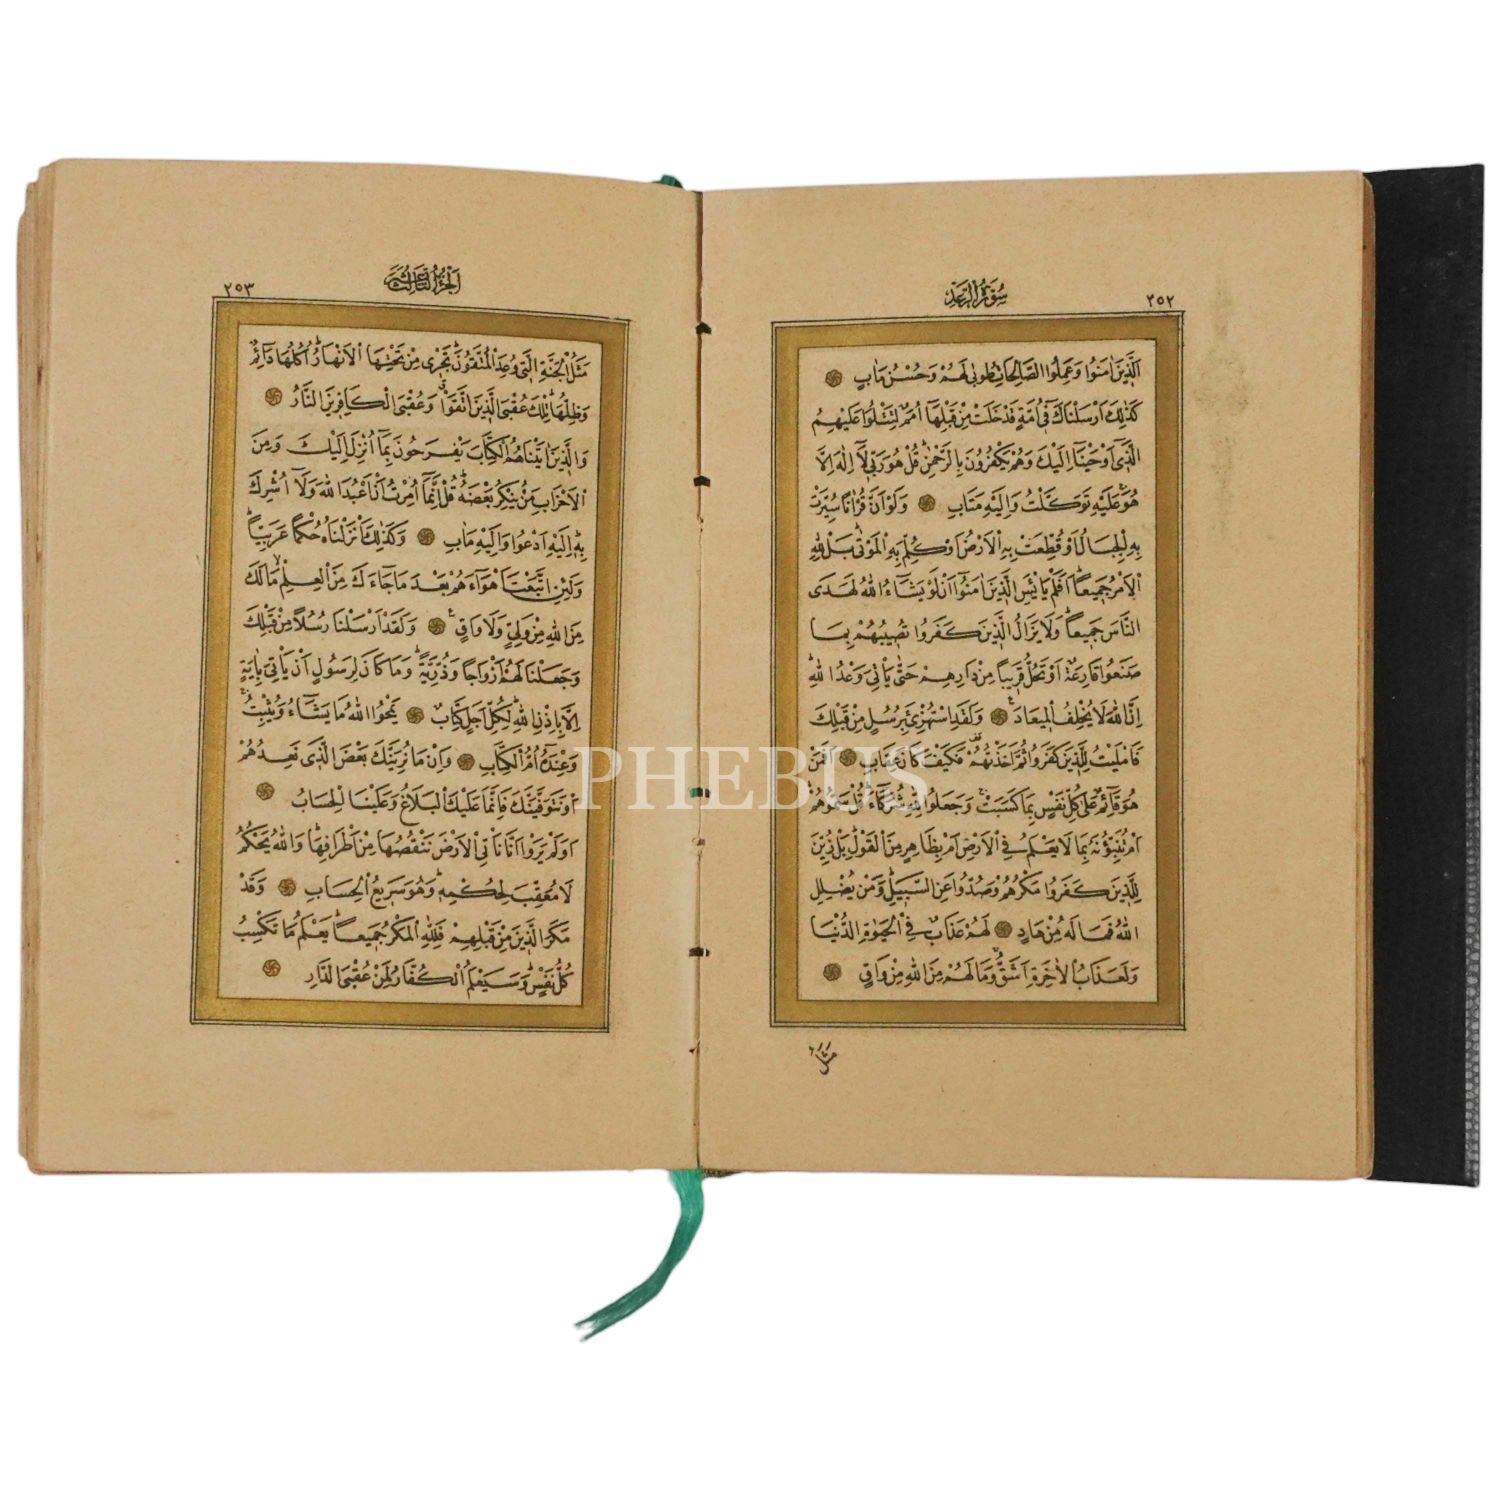 ٢٥٢
سُورَةُ الرَّعْدِ
اَلَّذِينَ اٰمَنُوا وَعَمِلُوا الصَّالِحَاتِ طُوبٰى لَهُمْ وَحُسْنُ مَاٰبٍ
كَذٰلِكَ اَرْسَلْنَاكَ فٖٓى اُمَّةٍ قَدْ خَلَتْ مِنْ قَبْلِهَٓا اُمَمٌ لِتَتْلُوَا عَلَيْهِمُ
الَّذٖٓى اَوْحَيْنَٓا اِلَيْكَ وَهُمْ يَكْفُرُونَ بِالرَّحْمٰنِۜ قُلْ هُوَ رَبّٖى لَٓا اِلٰهَ اِلَّا
هُوَۚ عَلَيْهِ تَوَكَّلْتُ وَاِلَيْهِ مَتَابِ وَلَوْ اَنَّ قُرْاٰنًا سُيِّرَتْ
بِهِ الْجِبَالُ اَوْ قُطِّعَتْ بِهِ الْاَرْضُ اَوْ كُلِّمَ بِهِ الْمَوْتٰىۜ بَلْ لِلّٰهِ
الْاَمْرُ جَمٖيعًاۜ اَفَلَمْ يَايْـَٔسِ الَّذٖينَ اٰمَنُٓوا اَنْ لَوْ يَشَٓاءُ اللّٰهُ لَهَدَى
النَّاسَ جَمٖيعًاۜ وَلَا يَزَالُ الَّذٖينَ كَفَرُوا تُصٖيبُهُمْ بِمَا
صَنَعُوا قَارِعَةٌ اَوْ تَحُلُّ قَرٖيبًا مِنْ دَارِهِمْ حَتّٰى يَاْتِىَ وَعْدُ اللّٰهِۜ
اِنَّ اللّٰهَ لَا يُخْلِفُ الْمٖيعَادَۚ وَلَقَدِ اسْتُهْزِئَ بِرُسُلٍ مِنْ قَبْلِكَ
فَاَمْلَيْتُ لِلَّذٖينَ كَفَرُوا ثُمَّ اَخَذْتُهُمْ فَكَيْفَ كَانَ عِقَابِ اَفَمَنْ
هُوَ قَٓائِمٌ عَلٰى كُلِّ نَفْسٍ بِمَا كَسَبَتْۚ وَجَعَلُوا لِلّٰهِ شُرَكَٓاءَۜ قُلْ سَمُّوهُمْۜ
اَمْ تُنَبِّؤُنَهُ بِمَا لَا يَعْلَمُ فِى الْاَرْضِ اَمْ بِظَاهِرٍ مِنَ الْقَوْلِۜ بَلْ زُيِّنَ
لِلَّذٖينَ كَفَرُوا مَكْرُهُمْ وَصُدُّوا عَنِ السَّبٖيلِۜ وَمَنْ يُضْلِلِ
اللّٰهُ فَمَا لَهُ مِنْ هَادٍ لَهُمْ عَذَابٌ فِى الْحَيٰوةِ الدُّنْيَا
وَلَعَذَابُ الْاٰخِرَةِ اَشَقُّۚ وَمَا لَهُمْ مِنَ اللّٰهِ مِنْ وَاقٍ
مَثَلُ
اَلْجُزْءُ الثَّالِثَ عَشَرَ
٢٥٣
مَثَلُ الْجَنَّةِ الَّتٖى وُعِدَ الْمُتَّقُونَۜ تَجْرٖى مِنْ تَحْتِهَا الْاَنْهَارُۜ اُكُلُهَا دَٓائِمٌ
وَظِلُّهَاۜ تِلْكَ عُقْبَى الَّذٖينَ اتَّقَوْاۗ وَعُقْبَى الْكَافِرٖينَ النَّارُ
وَالَّذٖينَ اٰتَيْنَاهُمُ الْكِتَابَ يَفْرَحُونَ بِمَٓا اُنْزِلَ اِلَيْكَ وَمِنَ
الْاَحْزَابِ مَنْ يُنْكِرُ بَعْضَهُۜ قُلْ اِنَّمَٓا اُمِرْتُ اَنْ اَعْبُدَ اللّٰهَ وَلَٓا اُشْرِكَ
بِهٖۜ اِلَيْهِ اَدْعُوا وَاِلَيْهِ مَاٰبِ وَكَذٰلِكَ اَنْزَلْنَاهُ حُكْمًا عَرَبِيًّاۜ
وَلَئِنِ اتَّبَعْتَ اَهْوَٓاءَهُمْ بَعْدَ مَا جَٓاءَكَ مِنَ الْعِلْمِۙ مَا لَكَ
مِنَ اللّٰهِ مِنْ وَلِىٍّ وَلَا وَاقٍۚ وَلَقَدْ اَرْسَلْنَا رُسُلًا مِنْ قَبْلِكَ
وَجَعَلْنَا لَهُمْ اَزْوَاجًا وَذُرِّيَّةًۜ وَمَا كَانَ لِرَسُولٍ اَنْ يَاْتِىَ بِاٰيَةٍ
اِلَّا بِاِذْنِ اللّٰهِۜ لِكُلِّ اَجَلٍ كِتَابٌ يَمْحُوا اللّٰهُ مَا يَشَٓاءُ وَيُثْبِتُۚ
وَعِنْدَهُٓ اُمُّ الْكِتَابِ وَاِنْ مَا نُرِيَنَّكَ بَعْضَ الَّذٖى نَعِدُهُمْ
اَوْ نَتَوَفَّيَنَّكَ فَاِنَّمَا عَلَيْكَ الْبَلَاغُ وَعَلَيْنَا الْحِسَابُ
اَوَلَمْ يَرَوْا اَنَّا نَاْتِى الْاَرْضَ نَنْقُصُهَا مِنْ اَطْرَافِهَاۜ وَاللّٰهُ يَحْكُمُ
لَا مُعَقِّبَ لِحُكْمِهٖۜ وَهُوَ سَرٖيعُ الْحِسَابِ وَقَدْ
مَكَرَ الَّذٖينَ مِنْ قَبْلِهِمْ فَلِلّٰهِ الْمَكْرُ جَمٖيعًاۜ يَعْلَمُ مَا تَكْسِبُ
كُلُّ نَفْسٍۜ وَسَيَعْلَمُ الْكُفَّارُ لِمَنْ عُقْبَى الدَّارِ
PHEBUS